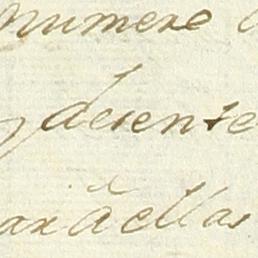 numere
decente
ara aellas